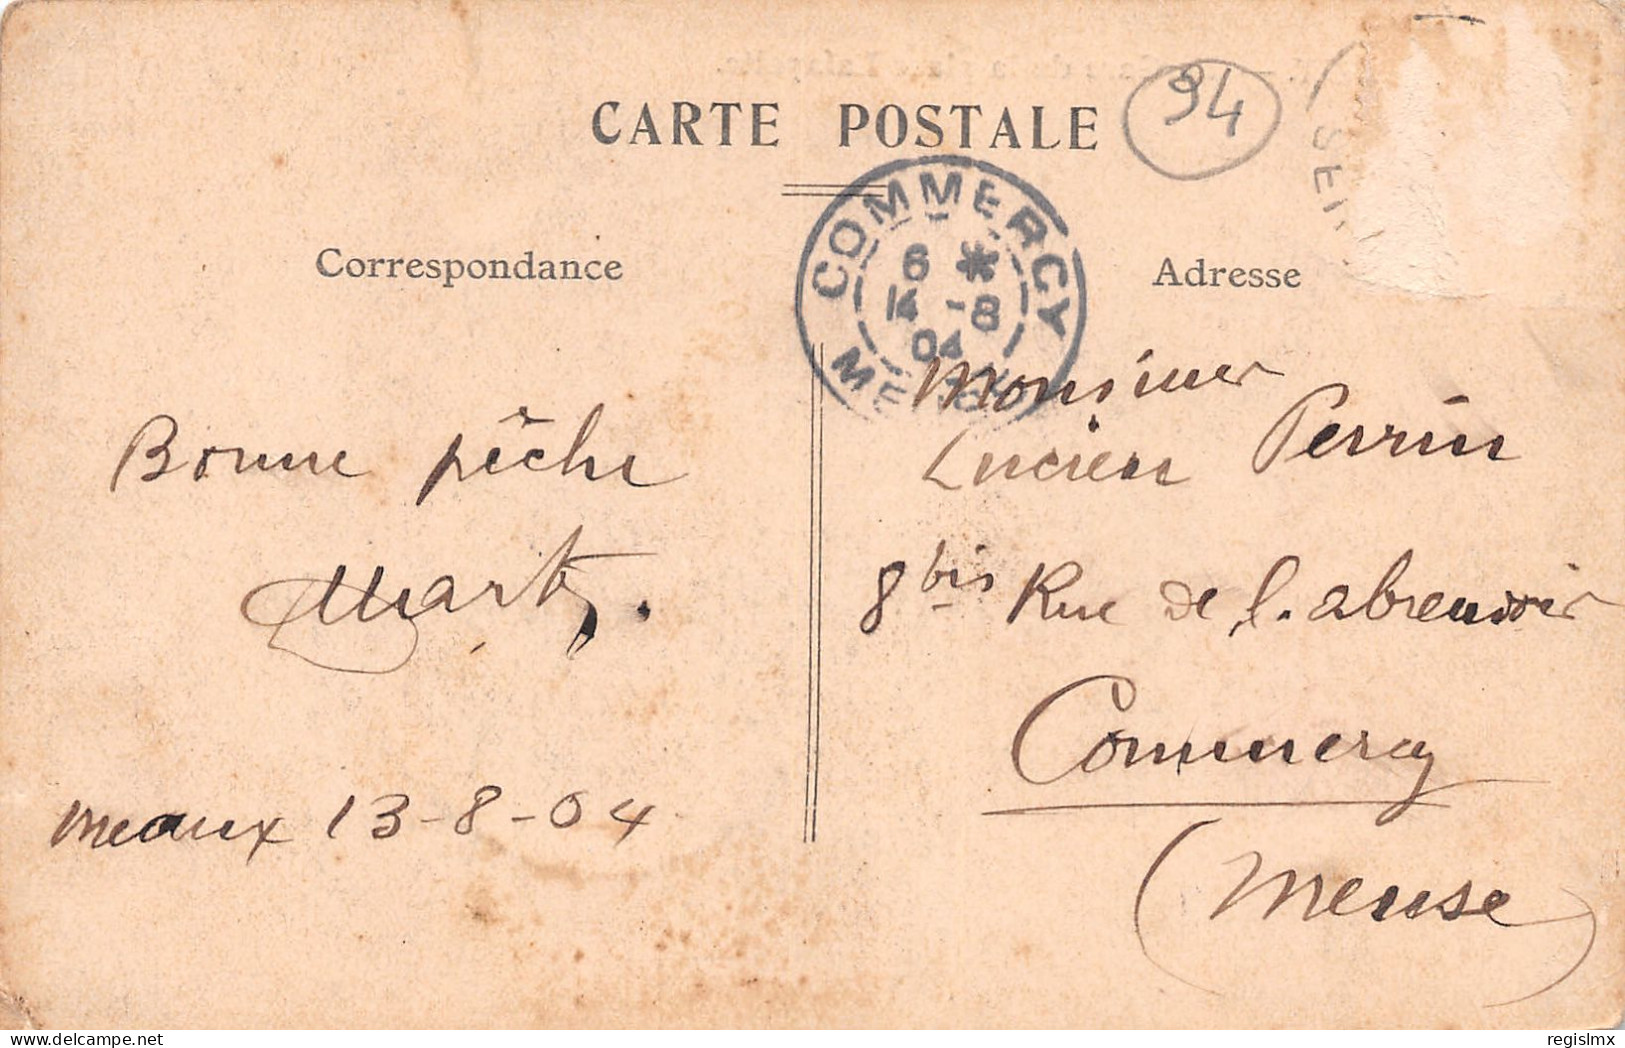 CARTE POSTALE
94
SEI
COMMERCY
6 *
14 -8
04
Correspondance
Adresse
Bonne pêche
Monsieur
Lucien Perrin
8 bis Rue de l'abreuvoir
Commercy
(Meuse)
Meaux 13-8-04
regislmx